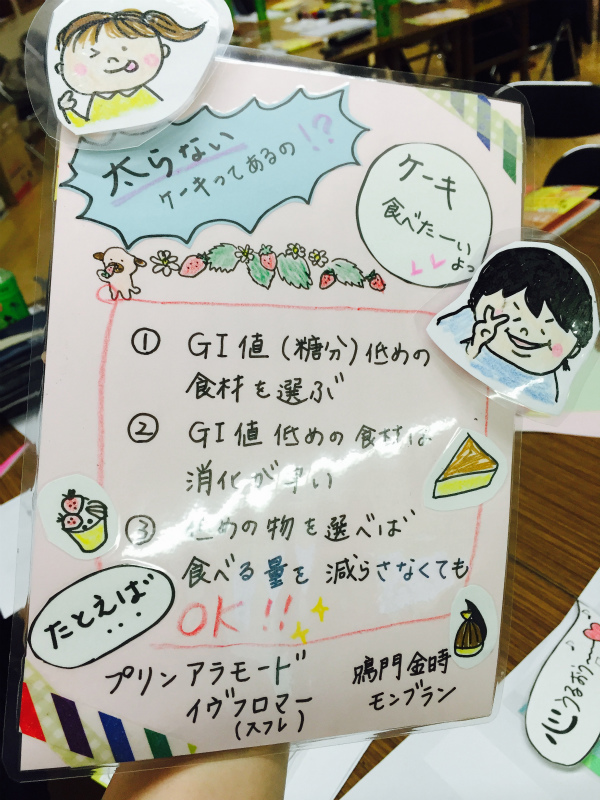 太らない
ケーキってあるの!?
ケーキ
食べたーい
よっ
① GI値(糖分)低めの
食材を選ぶ
② GI値低めの食材は
消化が早い
③ 低めの物を選べば
食べる量を減らさなくても
OK!!
たとえば
...
プリンアラモード
イヴフロマー
(スフレ)
鳴門金時
モンブラン
心うるおう